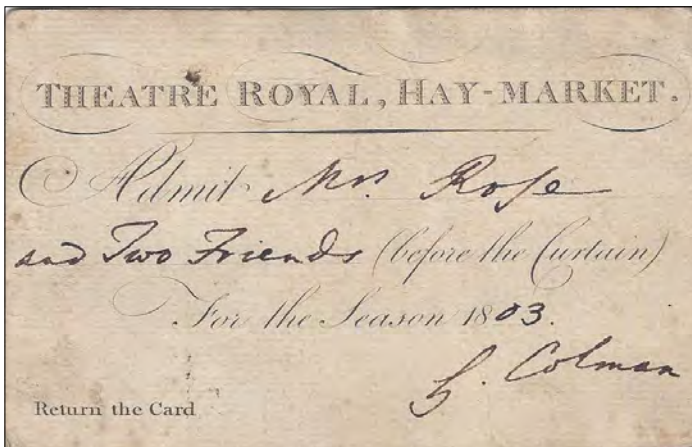 THEATRE ROYAL, HAY-MARKET.
Admit Mrs. Rose
and Two Friends (before the Curtain)
For the Season 1803.
G. Colman
Return the Card